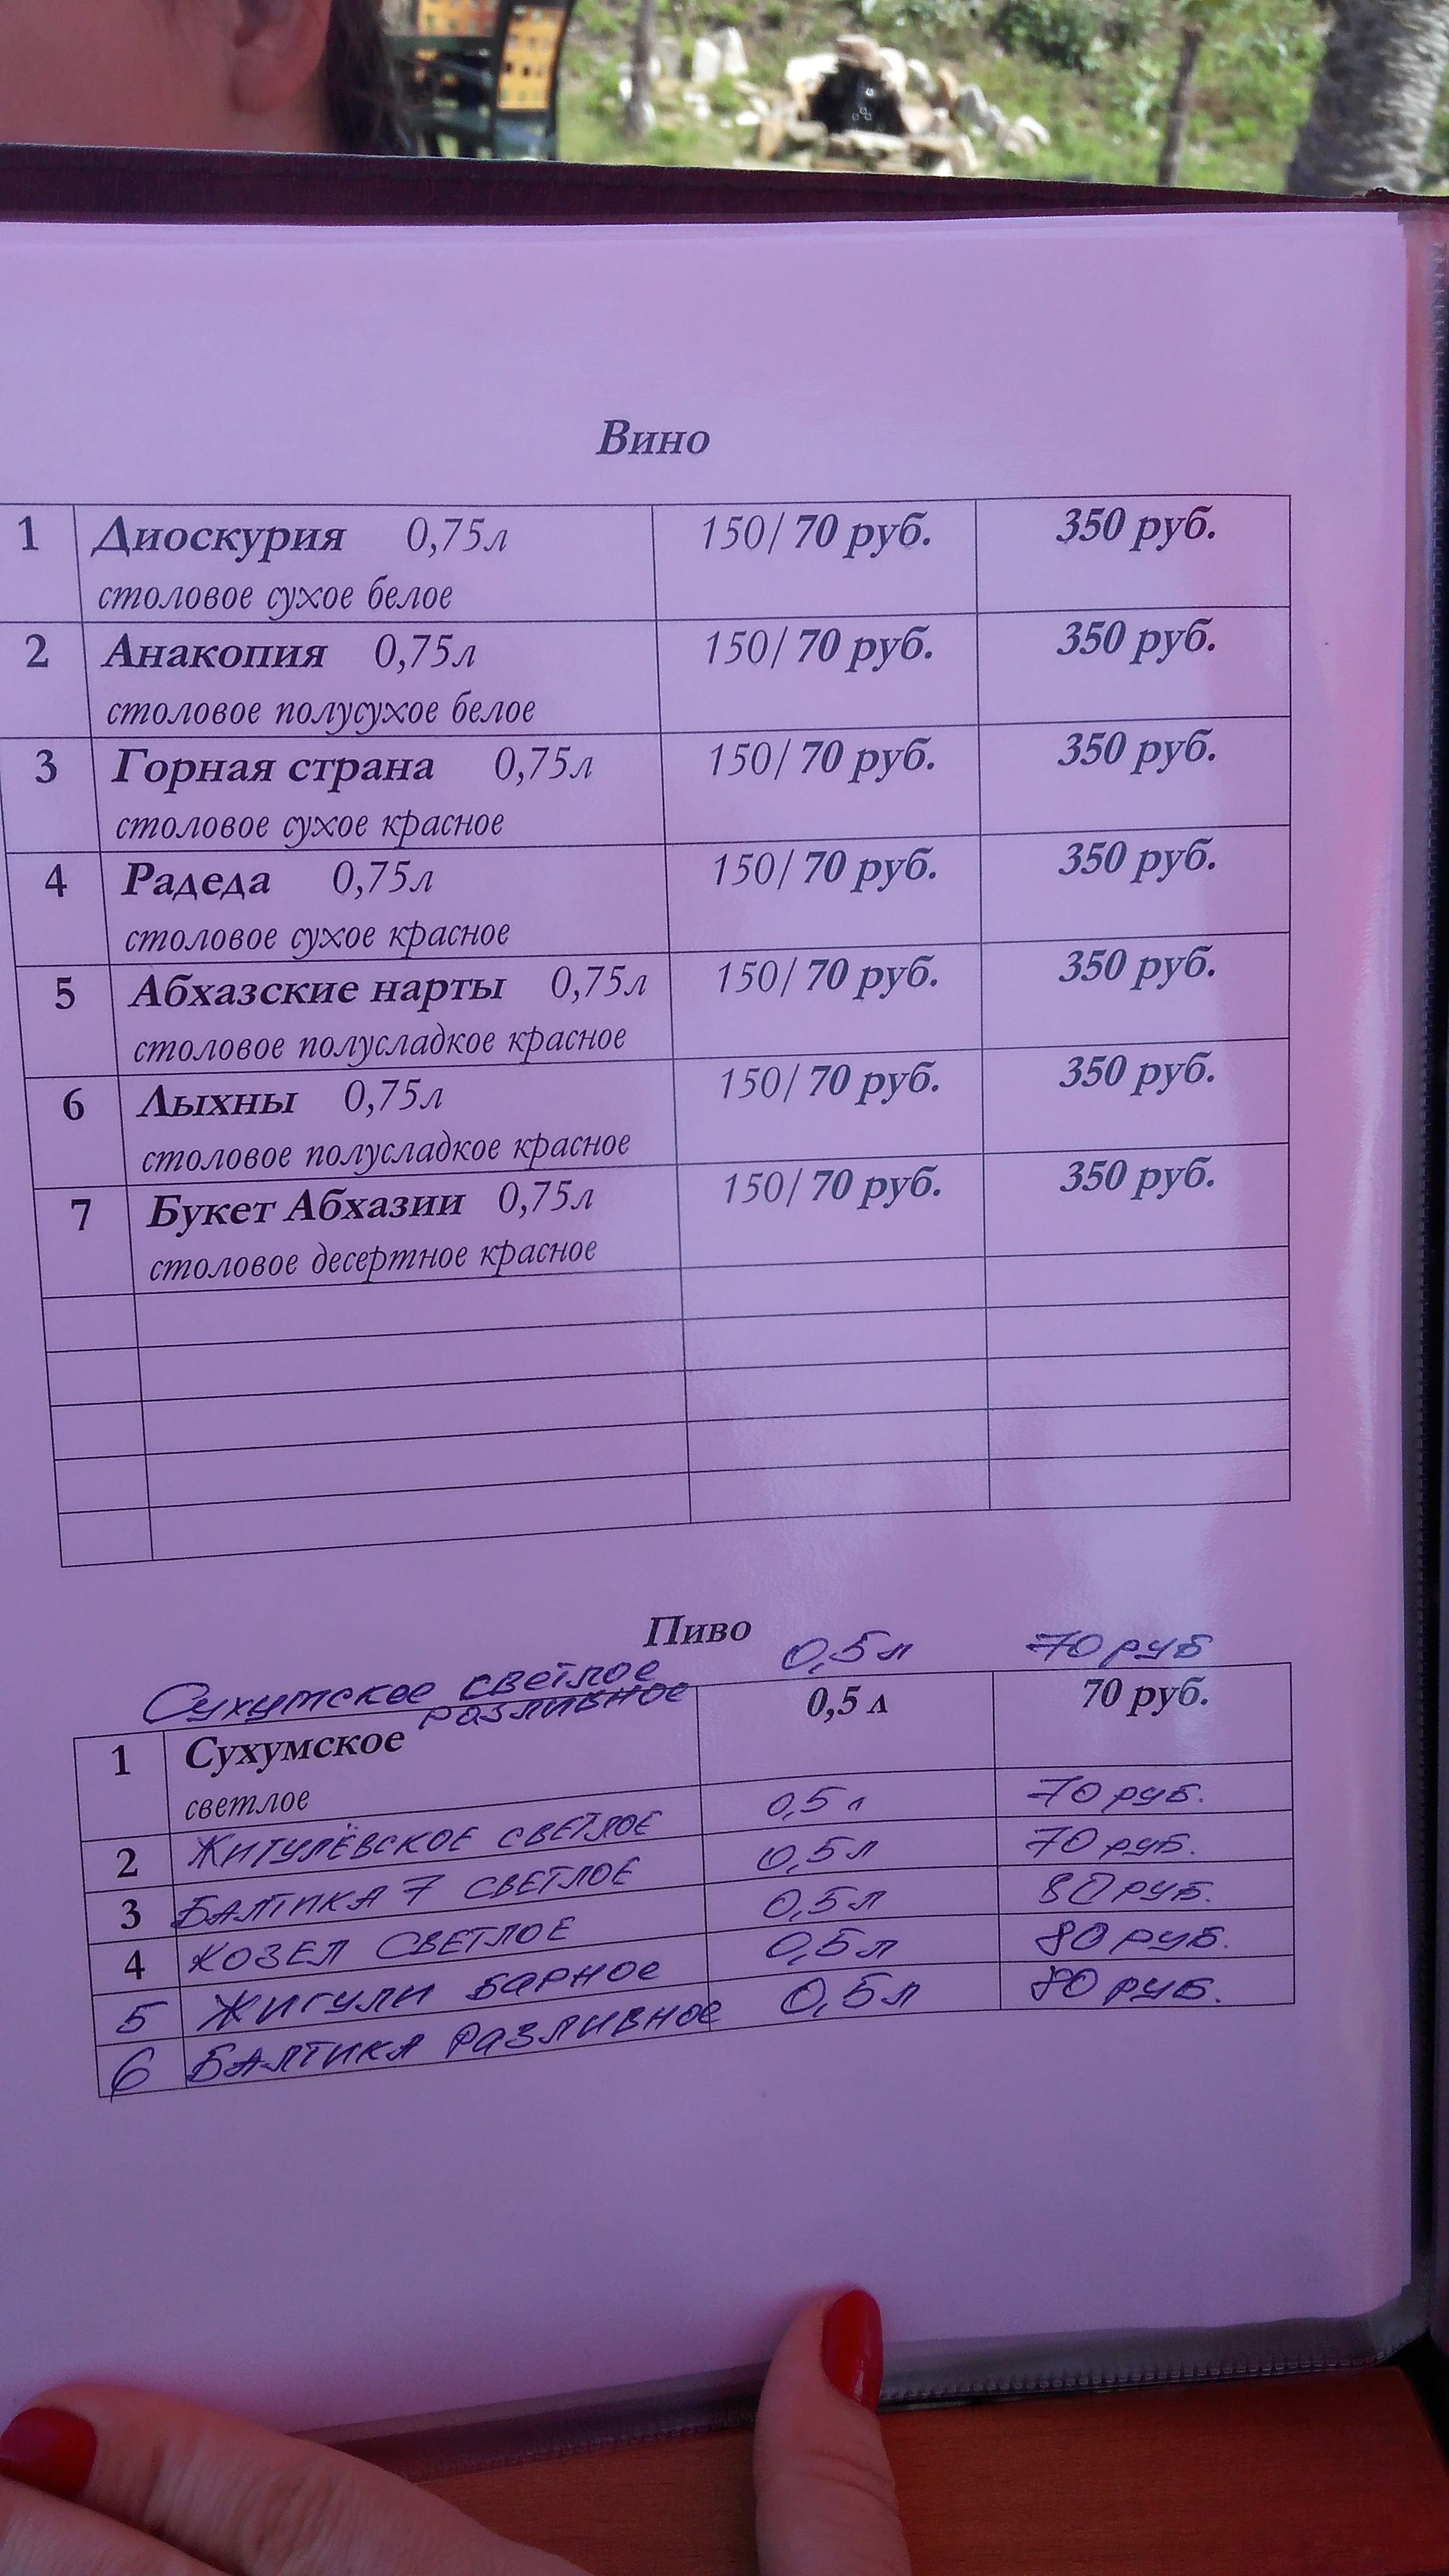 Вино
1 Диоскурия 0,75л 150/ 70 руб. 350 руб.
столовое сухое белое
2 Анакопия 0,75л 150/ 70 руб. 350 руб.
столовое полусухое белое
3 Горная страна 0,75л 150/ 70 руб. 350 руб.
столовое сухое красное
4 Радеда 0,75л 150/ 70 руб. 350 руб.
столовое сухое красное
5 Абхазские нарты 0,75л 150/ 70 руб. 350 руб.
столовое полусладкое красное
6 Лыхны 0,75л 150/ 70 руб. 350 руб.
столовое полусладкое красное
7 Букет Абхазии 0,75л 150/ 70 руб. 350 руб.
столовое десертное красное
Пиво
Сухумское светлое 0,5л 70 руб
разливное
1 Сухумское 0,5 л 70 руб.
светлое
2 ЖИГУЛЁВСКОЕ СВЕТЛОЕ 0,5 л 70 руб.
3 БАЛТИКА 7 СВЕТЛОЕ 0,5л 70 руб.
4 КОЗЕЛ СВЕТЛОЕ 0,5л 80 руб.
5 ЖИГУЛИ БАРНОЕ 0,5л 80 руб.
6 БАЛТИКА РАЗЛИВНОЕ 0,5л 80 руб.